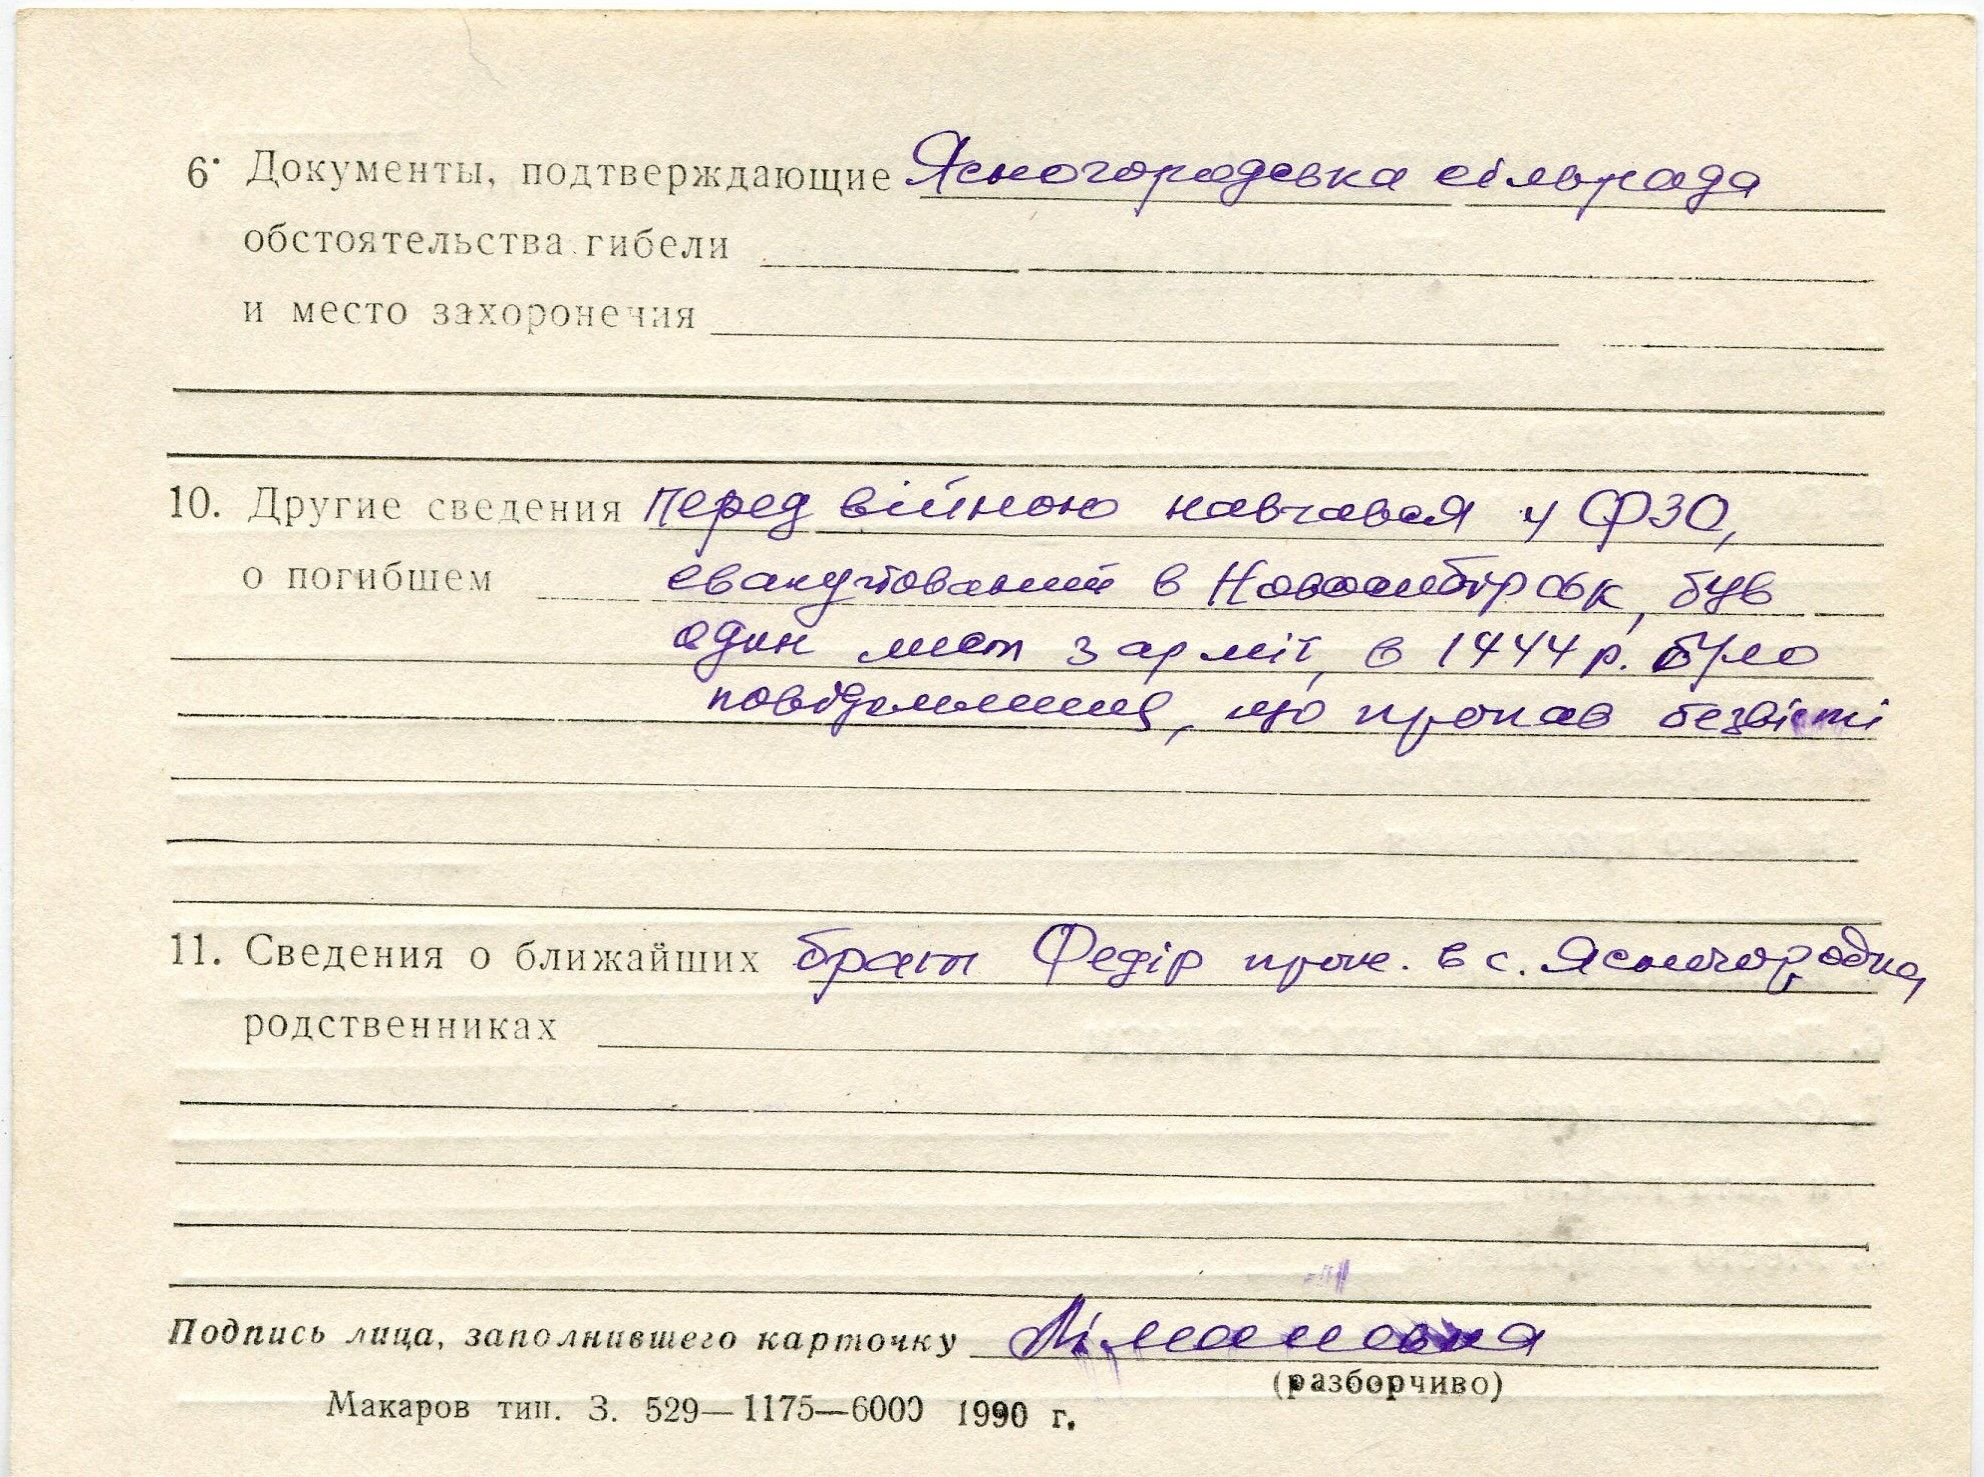 6. Документы, подтверждающие Ясногородська сільрада
обстоятельства гибели
и место захоронения
10. Другие сведения перед війною навчався у ФЗО,
о погибшем евакуйований в Новосибірськ, був
один лист з армії, в 1944 р. було
повідомлення, що пропав безвісті
11. Сведения о ближайших брат Федір прож. в с. Ясногородка,
родственниках
Подпись лица, заполнившего карточку
(разборчиво)
Макаров тип. З. 529—1175—6000 1990 г.